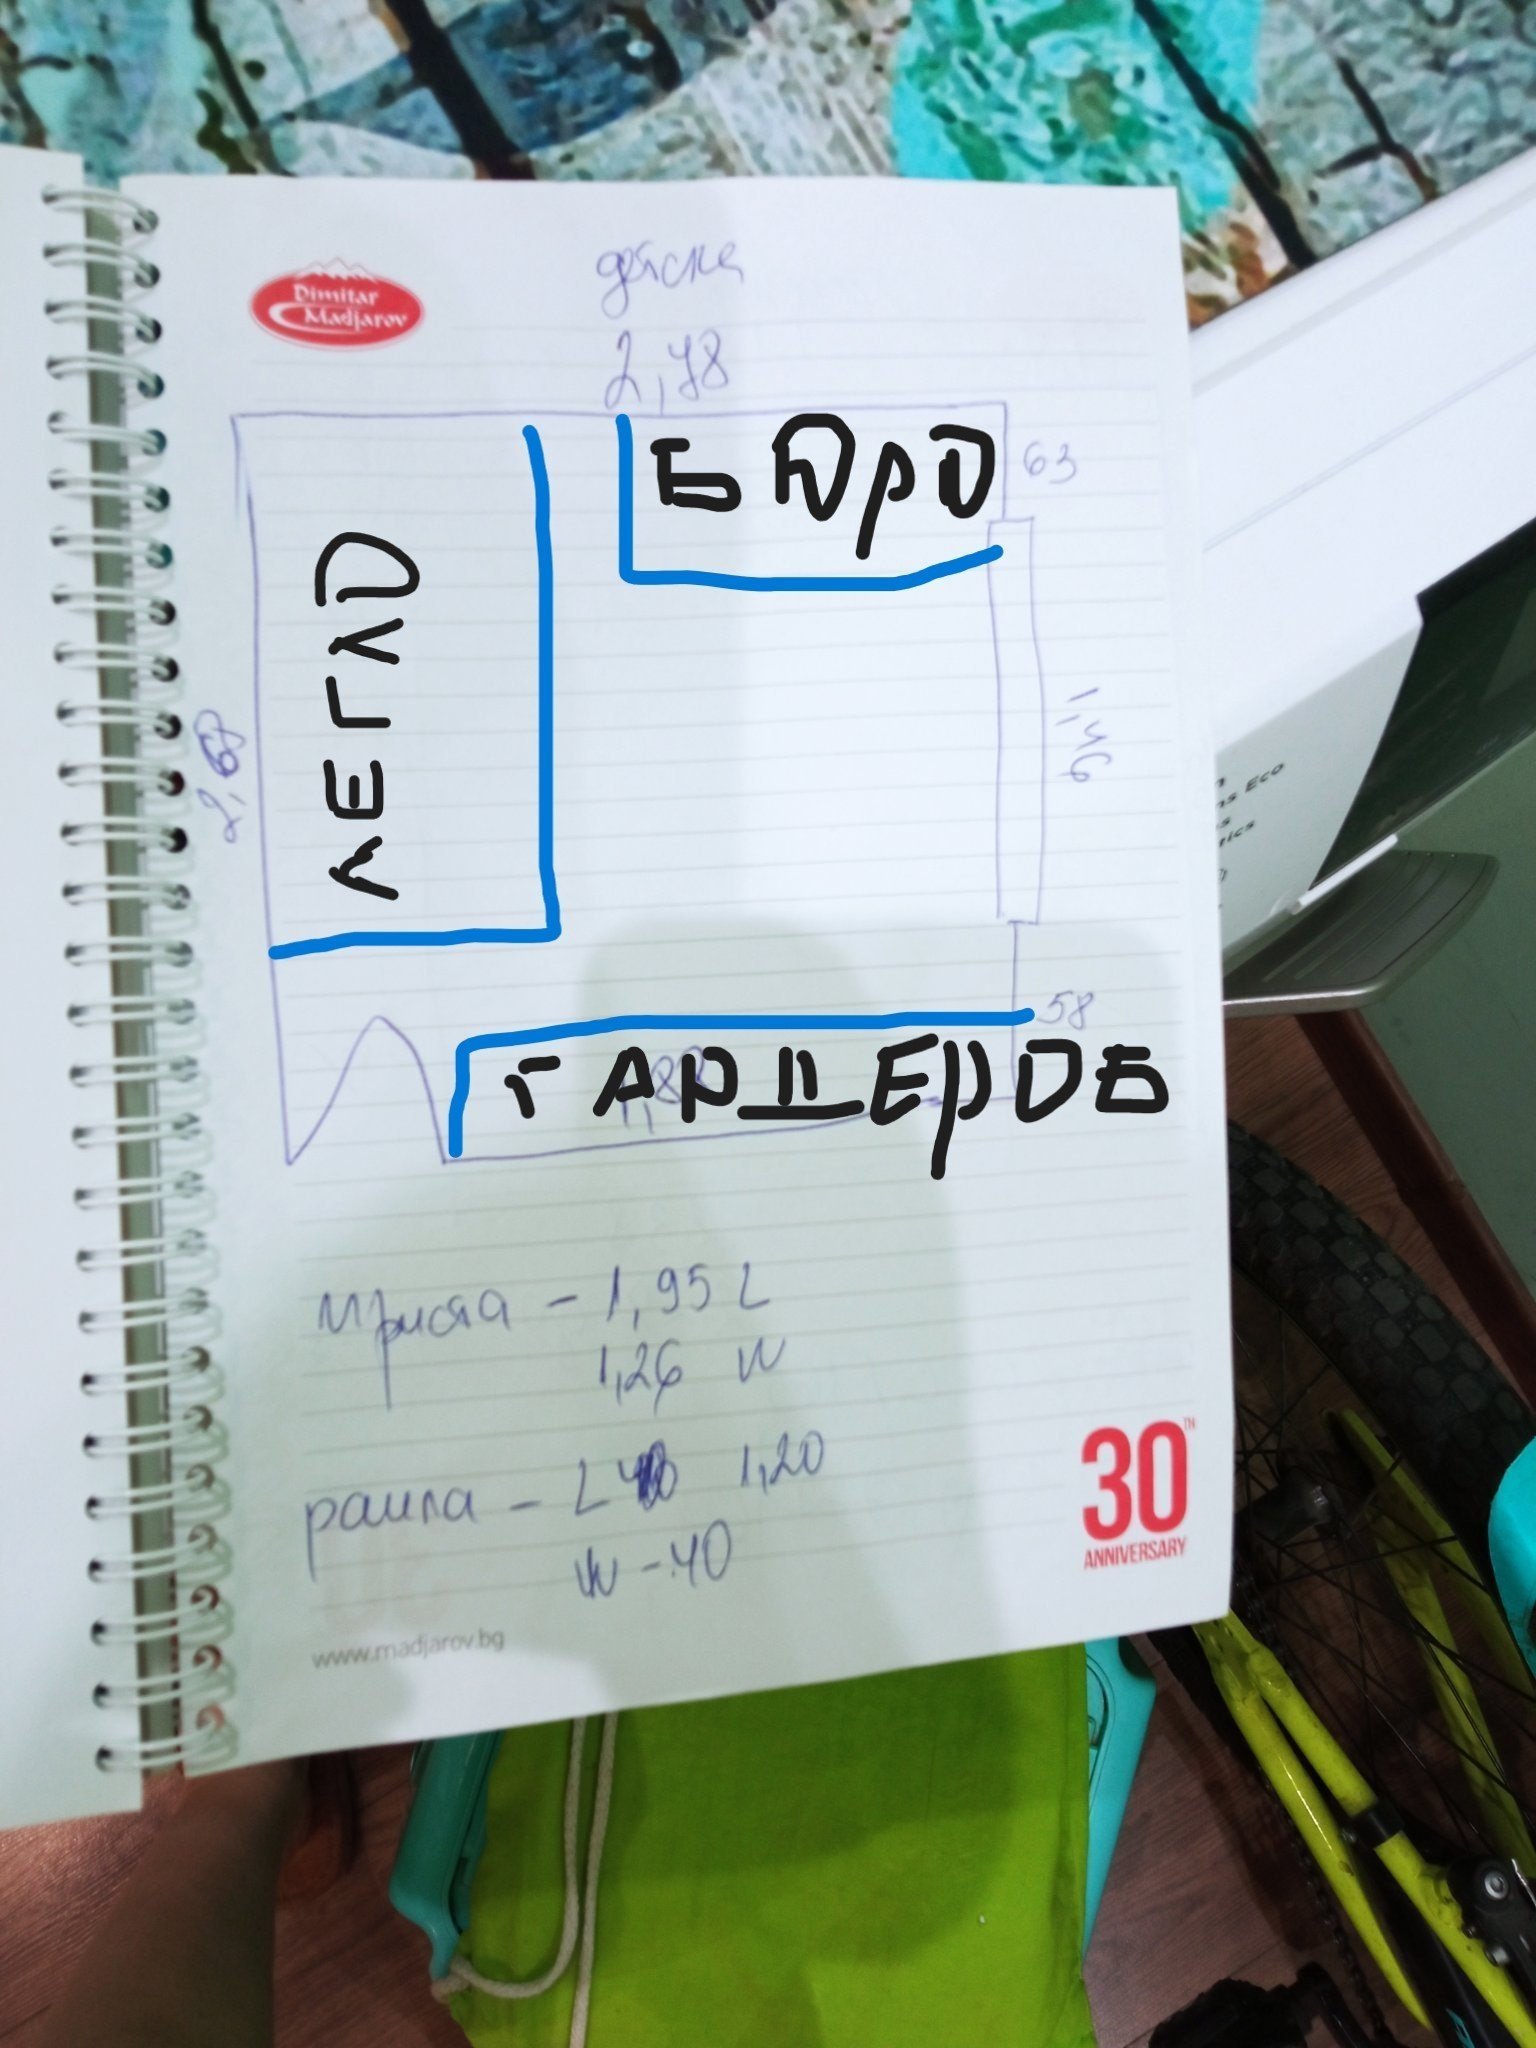 Dimitar
Madjarov
детска
2,78
БЮРО
63
ЛЕГЛО
1,46
58
ГАРДЕРОБ
1,88
приста - 1,95 L
1,26 W
ракла - L 1,20
W - 40
30TH
ANNIVERSARY
www.madjarov.bg
ns Eco